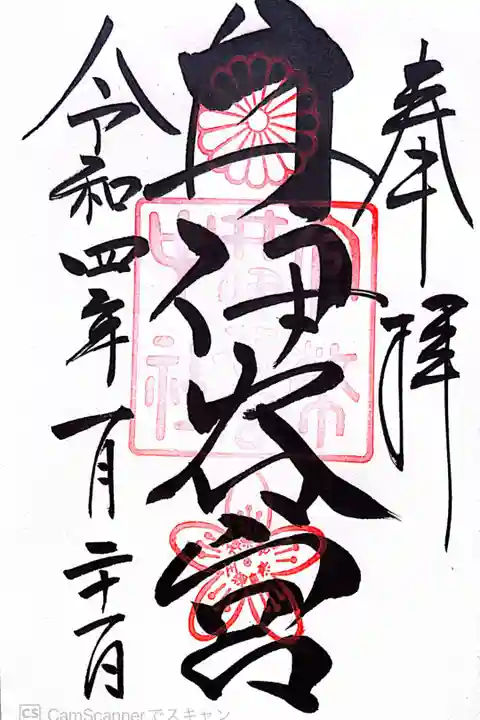 奉拝
井伊谷宮
令和四年一月二十一日
CS CamScannerでスキャン